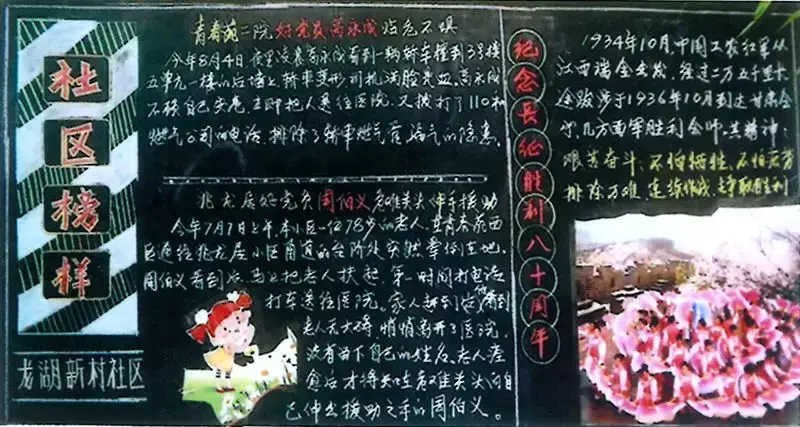 社区榜样
龙湖新村社区
青春苑二院好党员高永成临危不惧
今年8月4日夜里凌晨高永成看到一辆轿车撞到3号楼
五单元一楼的后墙上轿车变形司机满脸是血。高永成
不顾自己安危，立即把人送往医院，又拨打了110和
燃气公司的电话，排除了轿车燃气管漏气的隐患。
兆龙居好党员周伯义危难关头伸手援助
今年7月7日上午，本小区一位78岁的老人，在青春苑西
区通往兆龙居小区角道的台阶处突然晕倒在地。
周伯义看到后，马上把老人扶起，第一时间打电话
打车送往医院。家人赶到后看到
老人无大碍，悄悄离开了医院，
没有留下自己的姓名。老人痊
愈后才得知在危难关头向自
己伸出援助之手的周伯义。
纪念长征胜利八十周年
1934年10月，中国工农红军从
江西瑞金出发，经过二万五千里长
途跋涉于1936年10月到达甘肃会
宁，几方面军胜利会师。其精神：
艰苦奋斗、不怕牺牲、不怕艰苦
排除万难、连续作战、去争取胜利